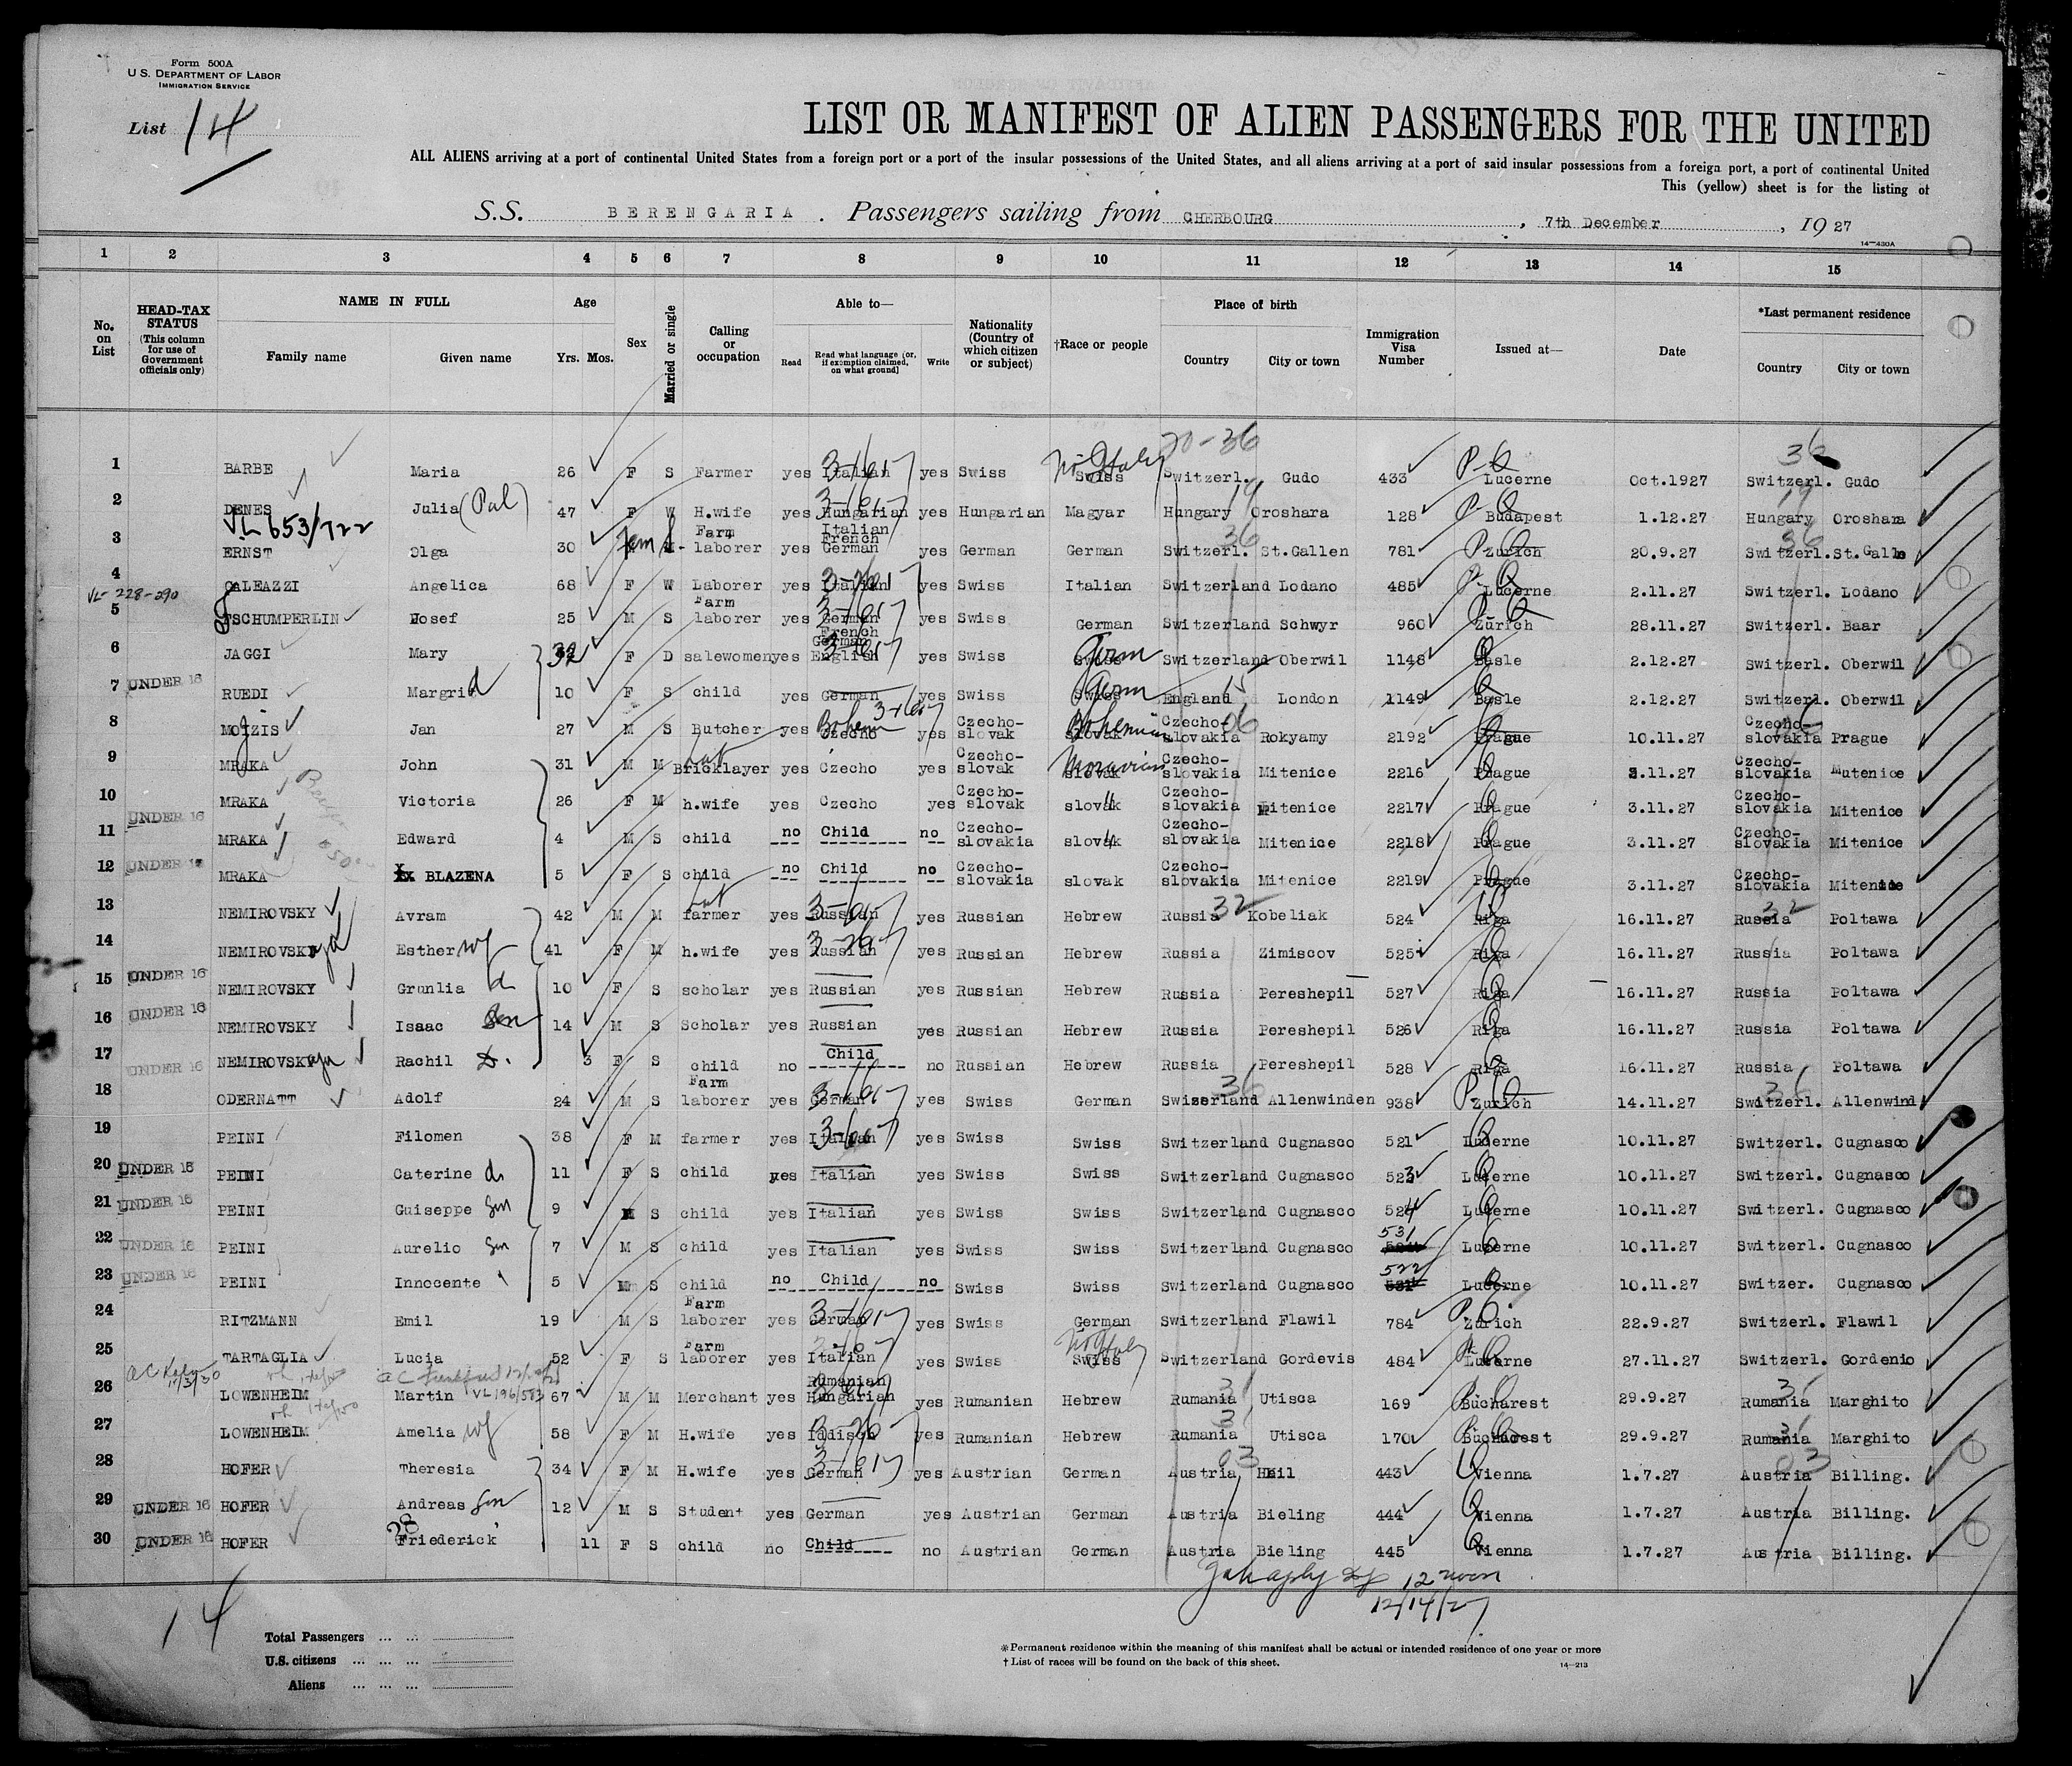 Form 500A
U.S. DEPARTMENT OF LABOR
IMMIGRATION SERVICE
List 14
LIST OR MANIFEST OF ALIEN PASSENGERS FOR THE UNITED
ALL ALIENS arriving at a port of continental United States from a foreign port or a port of the insular possessions of the United States, and all aliens arriving at a port of said insular possessions from a foreign port, a port of continental United
This (yellow) sheet is for the listing of
S.S. BERENGARIA. Passengers sailing from CHERBOURG, 7th December, 1927
14—430A
1 2 3 4 5 6 7 8 9 10 11 12 13 14 15
No. on List
HEAD-TAX STATUS (This column for use of Government officials only)
NAME IN FULL
Family name Given name
Age Yrs. Mos.
Sex
Married or single
Calling or occupation
Able to—
Read Read what language [or, if exemption claimed, on what ground] Write
Nationality (Country of which citizen or subject)
†Race or people
Place of birth
Country City or town
Immigration Visa Number
Issued at—
Date
*Last permanent residence
Country City or town
20-36 36
1 BARBE Maria 26 F S Farmer yes Italian yes Swiss Swiss Switzerl. Gudo 433 Lucerne Oct.1927 Switzerl. Gudo
2 DENES Julia (Pal) 47 F W H.wife yes Hungarian yes Hungarian Magyar Hungary Oroshara 128 Budapest 1.12.27 Hungary Oroshara
VL 653/722
3 ERNST Olga 30 Farm laborer yes Italian French German yes German German Switzerl. St.Gallen 781 Zurich 20.9.27 Switzerl. St.Galle
4 GALEAZZI Angelica 68 F W Laborer yes Italian yes Swiss Italian Switzerland Lodano 485 Lucerne 2.11.27 Switzerl. Lodano
VL-228-290
5 TSCHUMPERLIN Josef 25 M S Farm laborer yes German yes Swiss German Switzerland Schwyr 960 Zurich 28.11.27 Switzerl. Baar
6 JAGGI Mary 32 F D salewomen yes French German English yes Swiss Germ Switzerland Oberwil 1148 Basle 2.12.27 Switzerl. Oberwil
7 UNDER 16 RUEDI Margrid 10 F S child yes German yes Swiss Germ England London 1149 Basle 2.12.27 Switzerl. Oberwil
8 MOJZIS Jan 27 M S Butcher yes Bohem Czecho yes Czecho-slovak Bohemian Czecho-slovakia Rokyamy 2192 Prague 10.11.27 Czecho-slovakia Prague
9 MRAKA John 31 M M Bricklayer yes Czecho yes Czecho-slovak Moravian Czecho-slovakia Mitenice 2216 Prague 3.11.27 Czecho-slovakia Mutenice
10 MRAKA Victoria 26 F M h.wife yes Czecho yes Czecho-slovak slovak Czecho-slovakia Mitenice 2217 Prague 3.11.27 Czecho-slovakia Mitenice
11 UNDER 16 MRAKA Edward 4 M S child no Child no Czecho-slovakia slovak Czecho-slovakia Mitenice 2218 Prague 3.11.27 Czecho-slovakia Mitenice
12 UNDER 16 MRAKA BLAZENA 5 F S child no Child no Czecho-slovakia slovak Czecho-slovakia Mitenice 2219 Prague 3.11.27 Czecho-slovakia Mitenice
13 NEMIROVSKY Avram 42 M M farmer yes Russian yes Russian Hebrew Russia Kobeliak 524 Riga 16.11.27 Russia Poltawa
14 NEMIROVSKaya Esther wf 41 F M h.wife yes Russian yes Russian Hebrew Russia Zimiscov 525 Riga 16.11.27 Russia Poltawa
15 UNDER 16 NEMIROVSKY Grunlia 10 F S scholar yes Russian yes Russian Hebrew Russia Pereshepil 527 Riga 16.11.27 Russia Poltawa
16 UNDER 16 NEMIROVSKY Isaac Son 14 M S Scholar yes Russian yes Russian Hebrew Russia Pereshepil 526 Riga 16.11.27 Russia Poltawa
17 UNDER 16 NEMIROVSKaya Rachil D. 3 F S child no Child no Russian Hebrew Russia Pereshepil 528 Riga 16.11.27 Russia Poltawa
18 ODERNATT Adolf 24 M S Farm laborer yes German yes Swiss German Swizerland Allenwinden 938 Zurich 14.11.27 Switzerl. Allenwind
19 PEINI Filomen 38 F M farmer yes Italian yes Swiss Swiss Switzerland Cugnasco 521 Lucerne 10.11.27 Switzerl. Cugnasco
20 UNDER 16 PEINI Caterine d 11 F S child yes Italian yes Swiss Swiss Switzerland Cugnasco 523 Lucerne 10.11.27 Switzerl. Cugnasco
21 UNDER 16 PEINI Guiseppe Son 9 M S child yes Italian yes Swiss Swiss Switzerland Cugnasco 524 Lucerne 10.11.27 Switzerl. Cugnasco
22 UNDER 16 PEINI Aurelio Son 7 M S child yes Italian yes Swiss Swiss Switzerland Cugnasco 531 Lucerne 10.11.27 Switzerl. Cugnasco
23 UNDER 16 PEINI Innocente 5 M S child no Child no Swiss Swiss Switzerland Cugnasco 522 Lucerne 10.11.27 Switzer. Cugnasco
24 RITZMANN Emil 19 M S Farm laborer yes German yes Swiss German Switzerland Flawil 784 Zurich 22.9.27 Switzerl. Flawil
25 TARTAGLIA Lucia 52 F S Farm laborer yes Italian yes Swiss Swiss Switzerland Gordevis 484 Lucerne 27.11.27 Switzerl. Gordenio
26 LOWENHEIM Martin VL 196/583 67 M M Merchant yes Rumanian Hungarian yes Rumanian Hebrew Rumania Utisca 169 Bucharest 29.9.27 Rumania Marghito
27 LOWENHEIM Amelia wf 58 F M H.wife yes Iddisch yes Rumanian Hebrew Rumania Utisca 170 Bucharest 29.9.27 Rumania Marghito
28 HOFER Theresia 34 F M H.wife yes German yes Austrian German Austria Heil 443 Vienna 1.7.27 Austria Billing.
29 UNDER 16 HOFER Andreas Son 12 M S Student yes German yes Austrian German Austria Bieling 444 Vienna 1.7.27 Austria Billing.
30 UNDER 16 HOFER Friederick 11 F S child no Child no Austrian German Austria Bieling 445 Vienna 1.7.27 Austria Billing.
12 noon
12/14/27
14
Total Passengers
U.S. citizens
Aliens
*Permanent residence within the meaning of this manifest shall be actual or intended residence of one year or more
†List of races will be found on the back of this sheet.
14—213